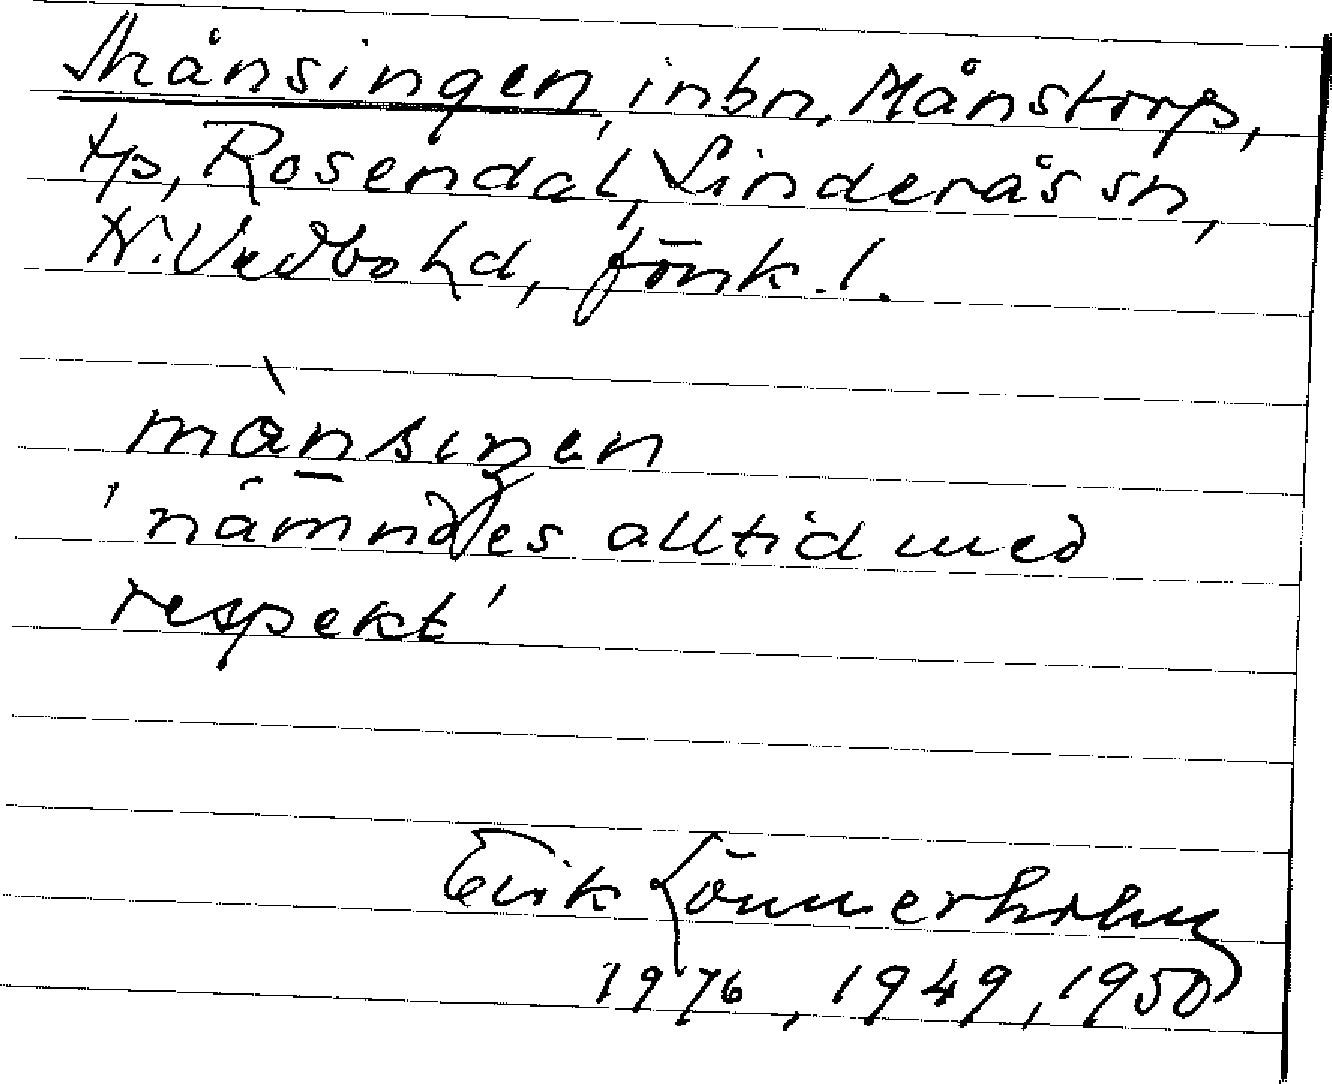 Månsingen, inbn, Månstorps,
tp, Rosendal, Linderås sn,
N. Vedbo hd, Jönk. l.
mànsiŋen
'nämndes alltid med
respekt'
Erik Lönnerholm
1976, 1949, 1950